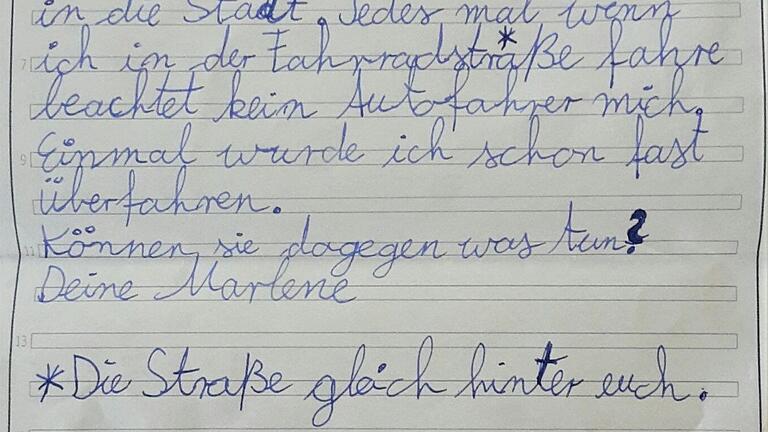 in die Stadt. Jedes mal wenn
7 ich in der Fahrradstraße* fahre
beachtet kein Autofahrer mich.
9 Einmal wurde ich schon fast
überfahren.
11 Können sie dagegen was tun?
Deine Marlene
13
*Die Straße gleich hinter euch.